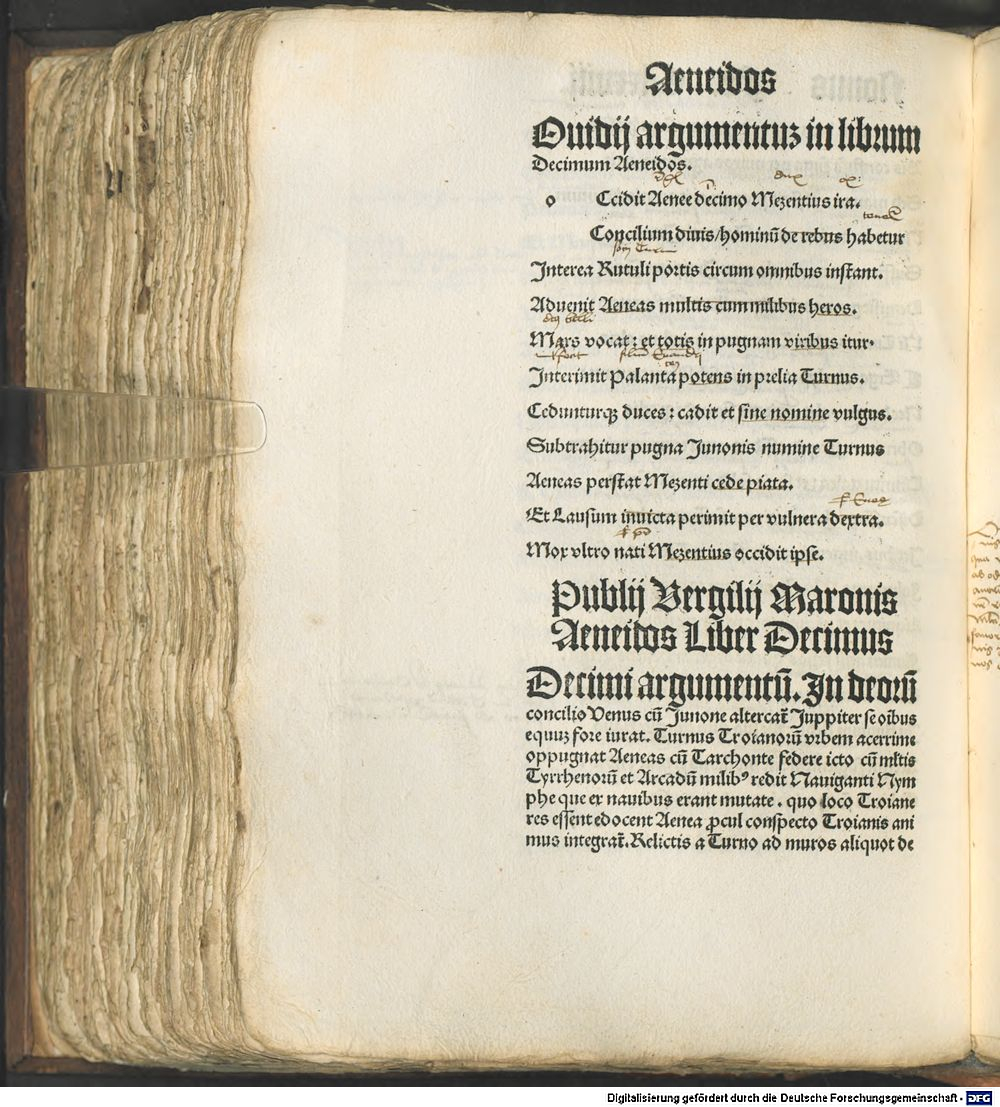 Aeneidos
Ouidij argumentuꝫ in librum
Decimum Aeneidos.
o Ccidit Aenee decimo Mezentius ira.
Concilium diuis/hominū de rebus habetur
Interea Rutuli portis circum omnibus instant.
Aduenit Aeneas multis cum milibus heros.
Mars vocat: et totis in pugnam viribus itur.
Interimit Palanta potens in prelia Turnus.
Cedunturqꝫ duces: cadit et sine nomine vulgus.
Subtrahitur pugna Junonis numine Turnus
Aeneas perstat Mezenti cede piata.
Et Lausum inuicta perimit per vulnera dextra.
Mox vltro nati Mezentius occidit ipse.
Publij Vergilij Maronis
Aeneidos Liber Decimus
Decimi argumentū. In deorū
concilio Venus cū Junone altercat᷑ Juppiter se oībus
equuꝫ fore iurat. Turnus Troianorū vrbem acerrime
oppugnat Aeneas cū Tarchonte federe icto cū mĺtis
Tyrrhenorū et Arcadū milibꝰ redit Nauiganti Nym
phe que ex nauibus erant mutate. quo loco Troiane
res essent edocent Aenea ꝓcul conspecto Troianis ani
mus integrat᷑. Relictis a Turno ad muros aliquot de
Digitalisierung gefördert durch die Deutsche Forschungsgemeinschaft - DFG